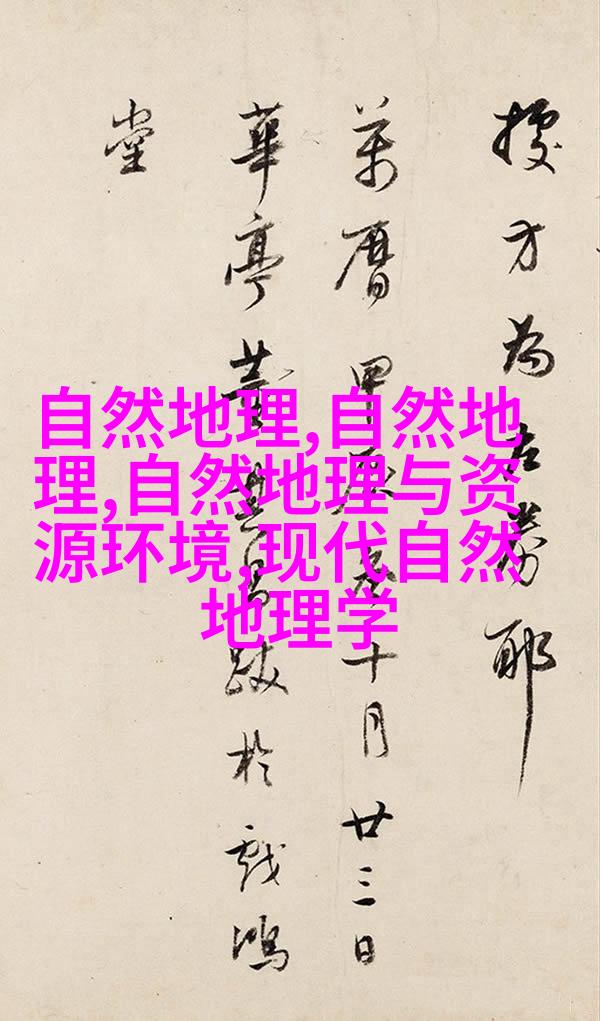 自然地理,自然地
理,自然地理与资
源环境,现代自然
地理学
方為券耶
萬曆甲辰冬十月廿三日
華亭董其昌跋於戲鴻
堂